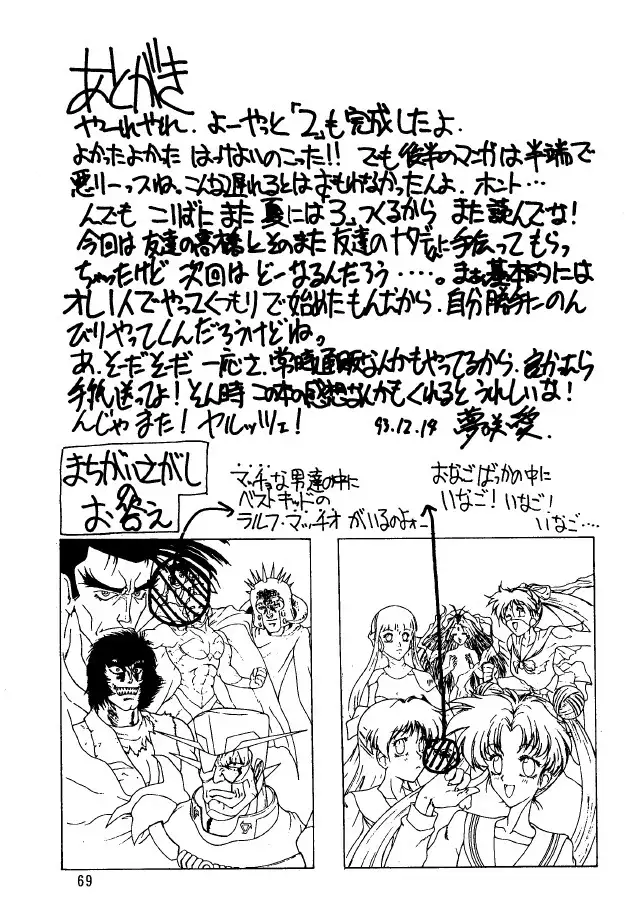 あとがき
やーれやれ.よーやっと「2」も完成したよ.
よかったよかった はっけよいのこった!! でも後半のマンガは半端で
悪りーっスね。こんな遅れるとはおもわなかったんよ.ホント…
んでも こりずに また 夏には「3」つくるから また読んでな!
今回は 友達の高橋と そのまた 友達の ナダに 手伝って もらっ
ちゃったけど 次回は どーなるんだろう ‥‥。まあ基本的には
オレ1人でやってくつもりで始めたもんだから.自分勝手にのん
びりやってくんだろうけどねっ
あ、そーだそーだ 一応さ、常時通販なんかもやってるから.
手紙送ってよ! そん時 この本の感想なんかもくれると うれしいな!
んじゃまた! ヤルッツェ! 93.12.19 夢咲愛.
まちがいさがし
の
お答え
マッチョな男達の中に
ベストキッドの
ラルフ・マッチオ がいるのよォー
おなごばっかの中に
いなご! いなご!
いなご‥‥
69